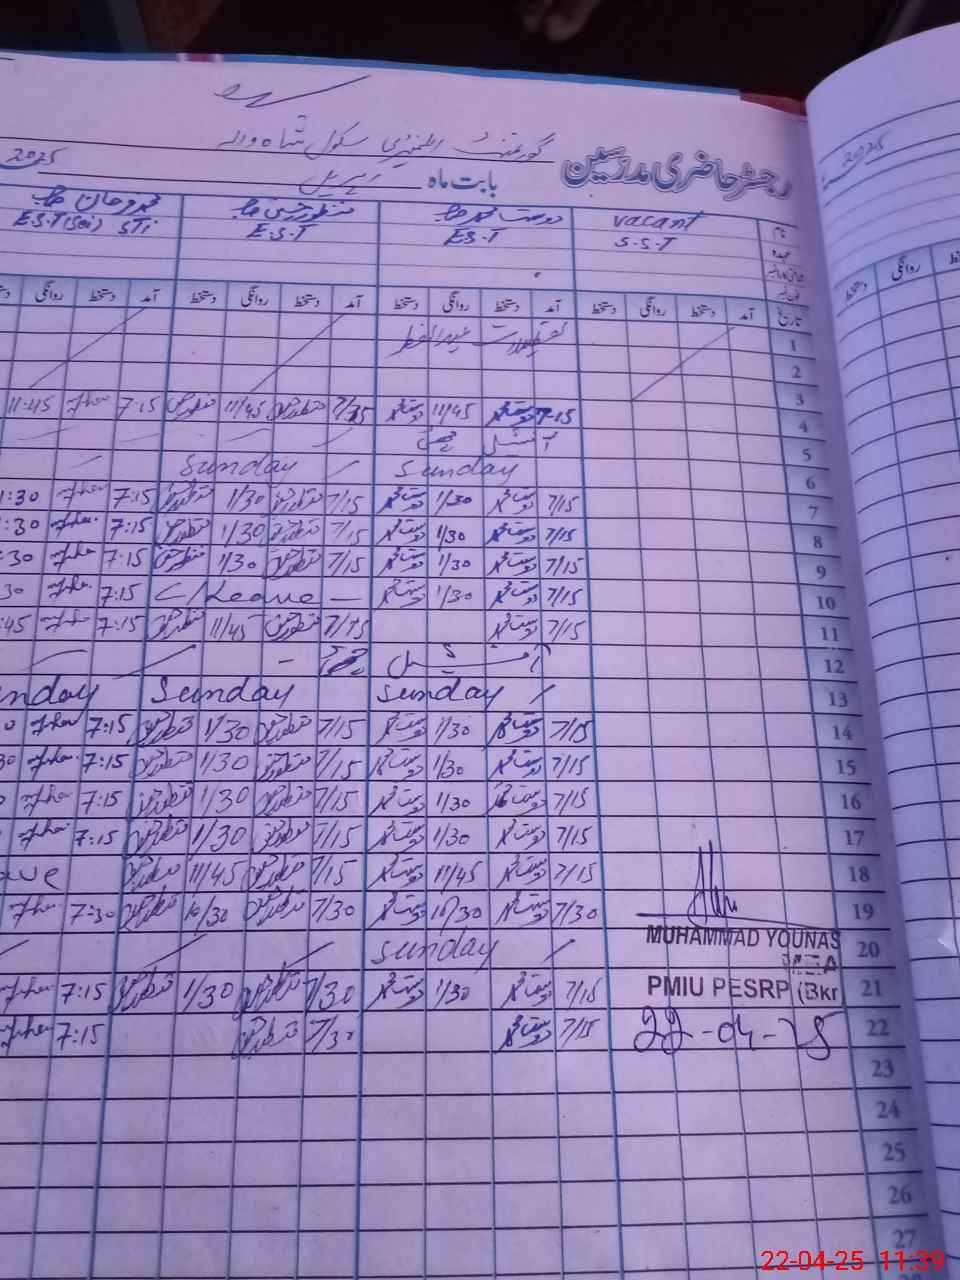 گورنمنٹ ایلیمنٹری سکول شاہ والہ
رجسٹر حاضری مدرسین
بابت ماہ اپریل 2025
2025
نام vacant دوست محمد صاحب منظور حسین صاحب
عہدہ S.S.T E.S.T E.S.T E.S.T (Sci) STi
تاریخ آمد دستخط روانگی دستخط آمد دستخط روانگی دستخط آمد دستخط روانگی دستخط آمد دستخط روانگی
روانگی دستخط
1 تعطیلات عیدالفطر
2
3
4 7-15 دوست محمد 11/45 دوست محمد 7/15 منظور حسین 11/45 منظور حسین 7:15 11:45
5
6 Sunday Sunday
7 7/15 دوست محمد 1/30 دوست محمد 7/15 منظور حسین 1/30 منظور حسین 7:15 1:30
8 7/15 دوست محمد 1/30 دوست محمد 7/15 منظور حسین 1/30 منظور حسین 7:15 :30
9 7/15 دوست محمد 1/30 دوست محمد 7/15 منظور حسین 1/30 منظور حسین 7:15 :30
10 7/15 دوست محمد 1/30 دوست محمد C/Leave 7:15 30
11 7/15 دوست محمد 7/15 منظور حسین 11/45 منظور حسین 7:15 :45
12
13 Sunday Sunday nday
14 7/15 دوست محمد 1/30 دوست محمد 7/15 منظور حسین 1/30 منظور حسین 7:15 0
15 7/15 دوست محمد 1/30 دوست محمد 7/15 منظور حسین 1/30 منظور حسین 7:15 30
16 7/15 دوست محمد 1/30 دوست محمد 7/15 منظور حسین 1/30 منظور حسین 7:15
17 7/15 دوست محمد 1/30 دوست محمد 7/15 منظور حسین 1/30 منظور حسین 7:15
18 7/15 دوست محمد 11/45 دوست محمد 7/15 منظور حسین 11/45 منظور حسین ave
19 7/30 دوست محمد 10/30 دوست محمد 7/30 منظور حسین 10/30 منظور حسین 7:30
20 Sunday
MUHAMMAD YOUNAS
MEA
21 7/15 دوست محمد 1/30 دوست محمد 7/30 منظور حسین 1/30 منظور حسین 7:15
PMIU PESRP (Bkr
22 7/15 دوست محمد 7/30 منظور حسین 7:15
22-04-25
23
24
25
26
27
22-04-25 11:39